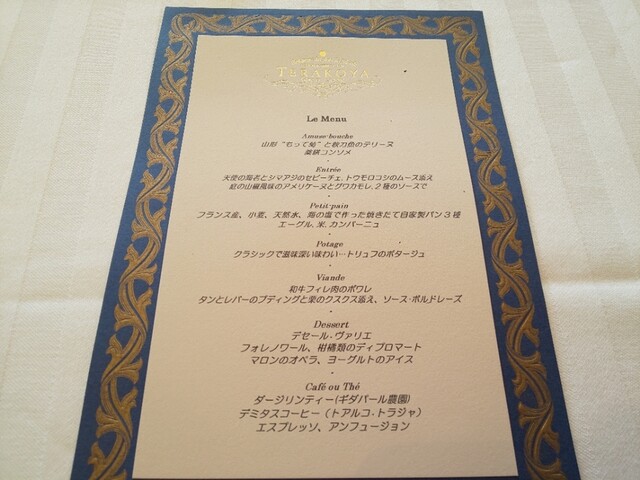 TERAKOYA
Le Menu
Amuse-bouche
山形 “もって菊” と秋刀魚のテリーヌ
薬膳コンソメ
Entrée
天使の海老とシマアジのセビーチェ、トウモロコシのムース添え
庭の山椒風味のアメリケーヌとグワカモレ、2種のソースで
Petit-pain
フランス産、小麦、天然水、海の塩で作った焼きたて自家製パン3種
エーグル、米、カンパーニュ
Potage
クラシックで滋味深い味わい…トリュフのポタージュ
Viande
和牛フィレ肉のポワレ
タンとレバーのプディングと栗のクスクス添え、ソース・ボルドレーズ
Dessert
デセール・ヴァリエ
フォレノワール、柑橘類のディプロマート
マロンのオペラ、ヨーグルトのアイス
Café ou Thé
ダージリンティー(ギダパール農園)
デミタスコーヒー（トアルコ・トラジャ）
エスプレッソ、アンフュージョン